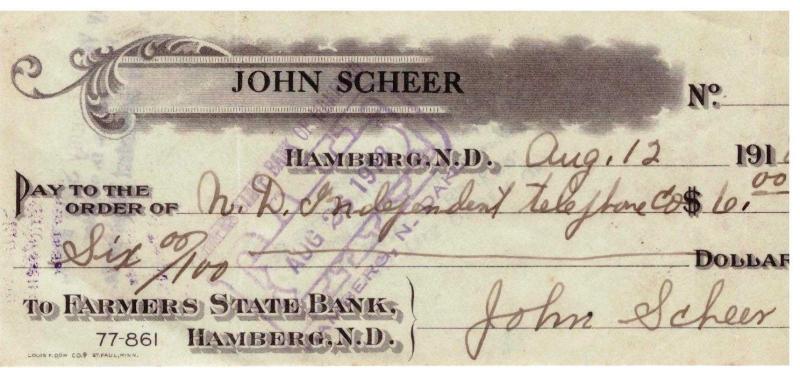 JOHN SCHEER
Nº
HAMBERG, N.D. Aug. 12 191
PAY TO THE ORDER OF N. D. Independent telephone Co $ 6.00
Six 00/100 DOLLAR
TO FARMERS STATE BANK,
77-861 HAMBERG, N.D.
John Scheer
LOUIS F. DOW CO. ST. PAUL, MINN.
AUG